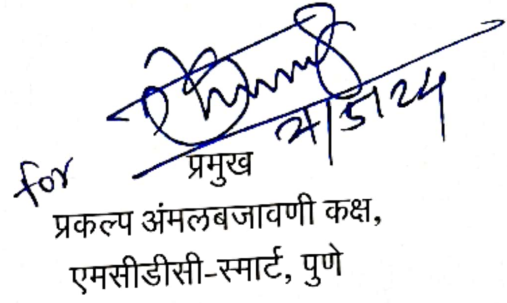 for
प्रमुख
प्रकल्प अंमलबजावणी कक्ष,
एमसीडीसी-स्मार्ट, पुणे